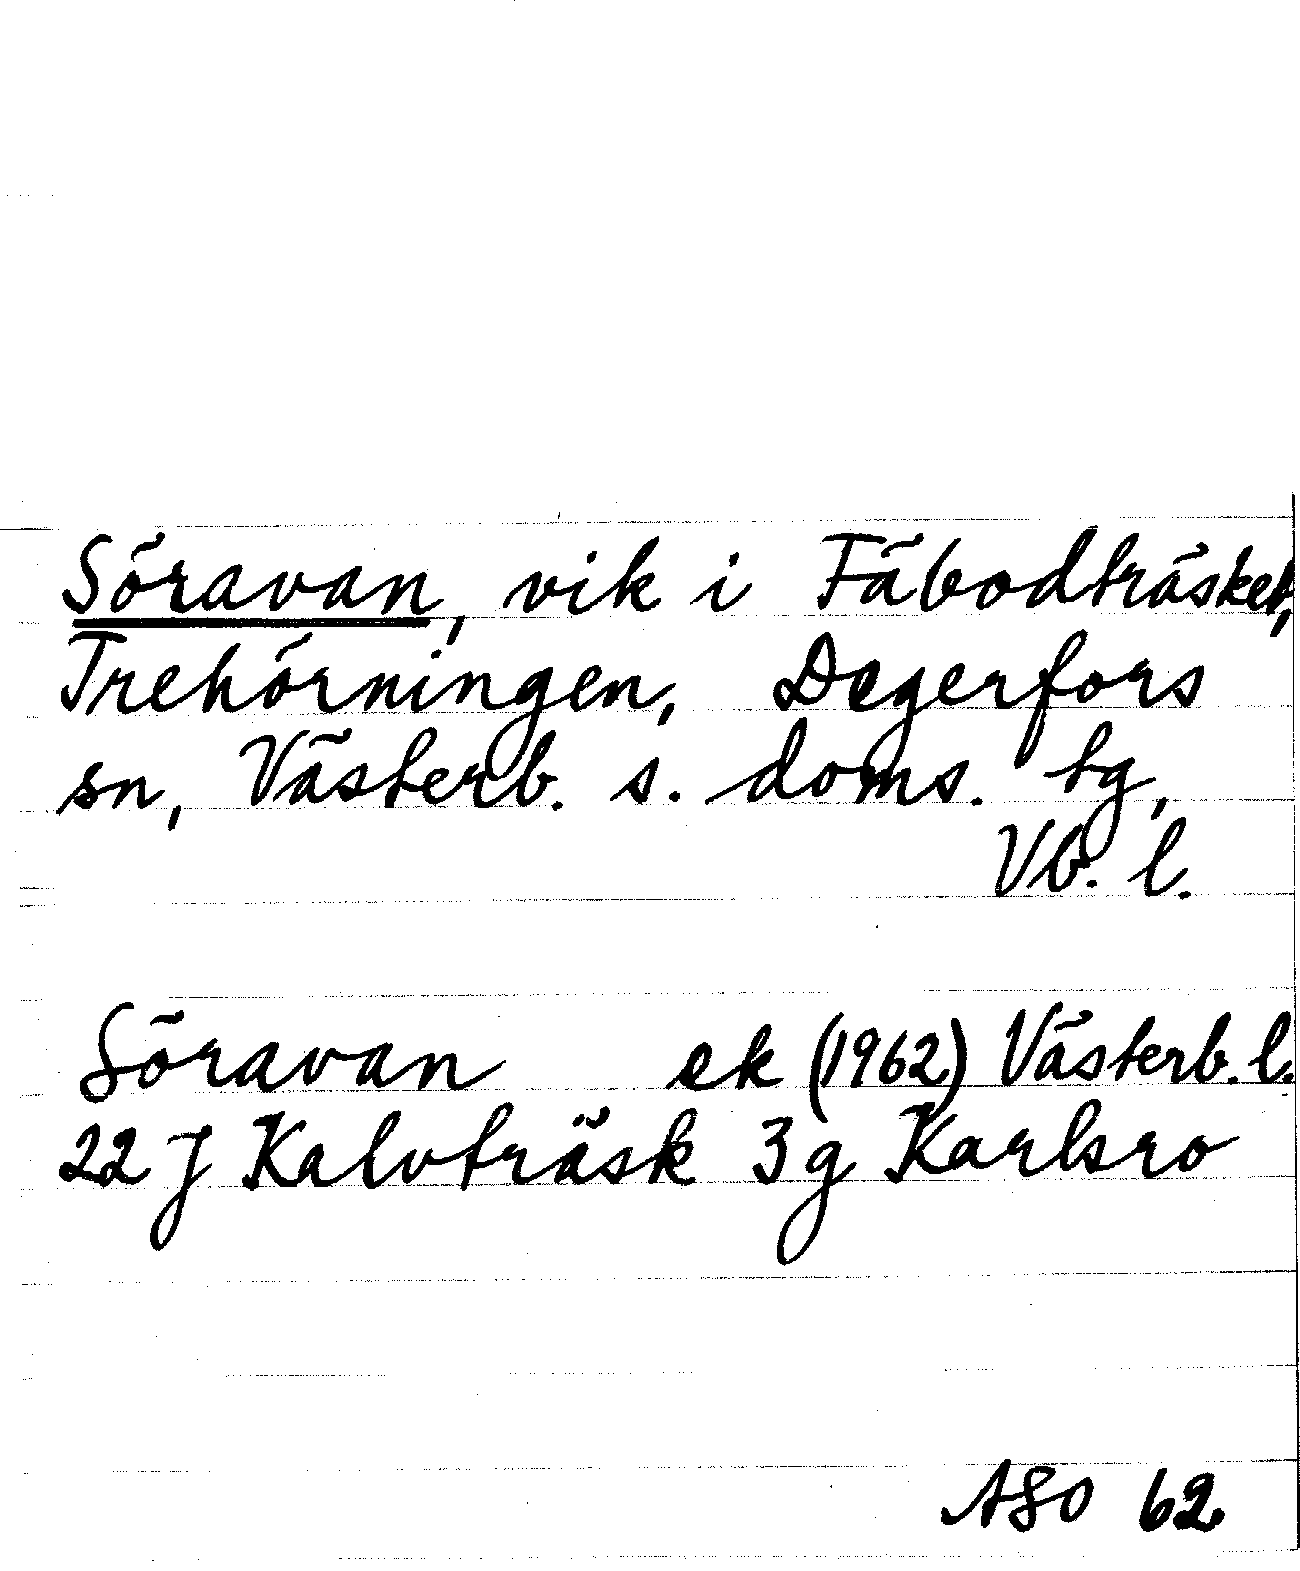 Söravan, vik i Fäbodträsket,
Trehörningen, Degerfors
sn, Västerb. s. doms. tg,
Vb. l.
Söravan ek (1962) Västerb. l.
22 J Kalvträsk 3g Karlsro
ASO 62